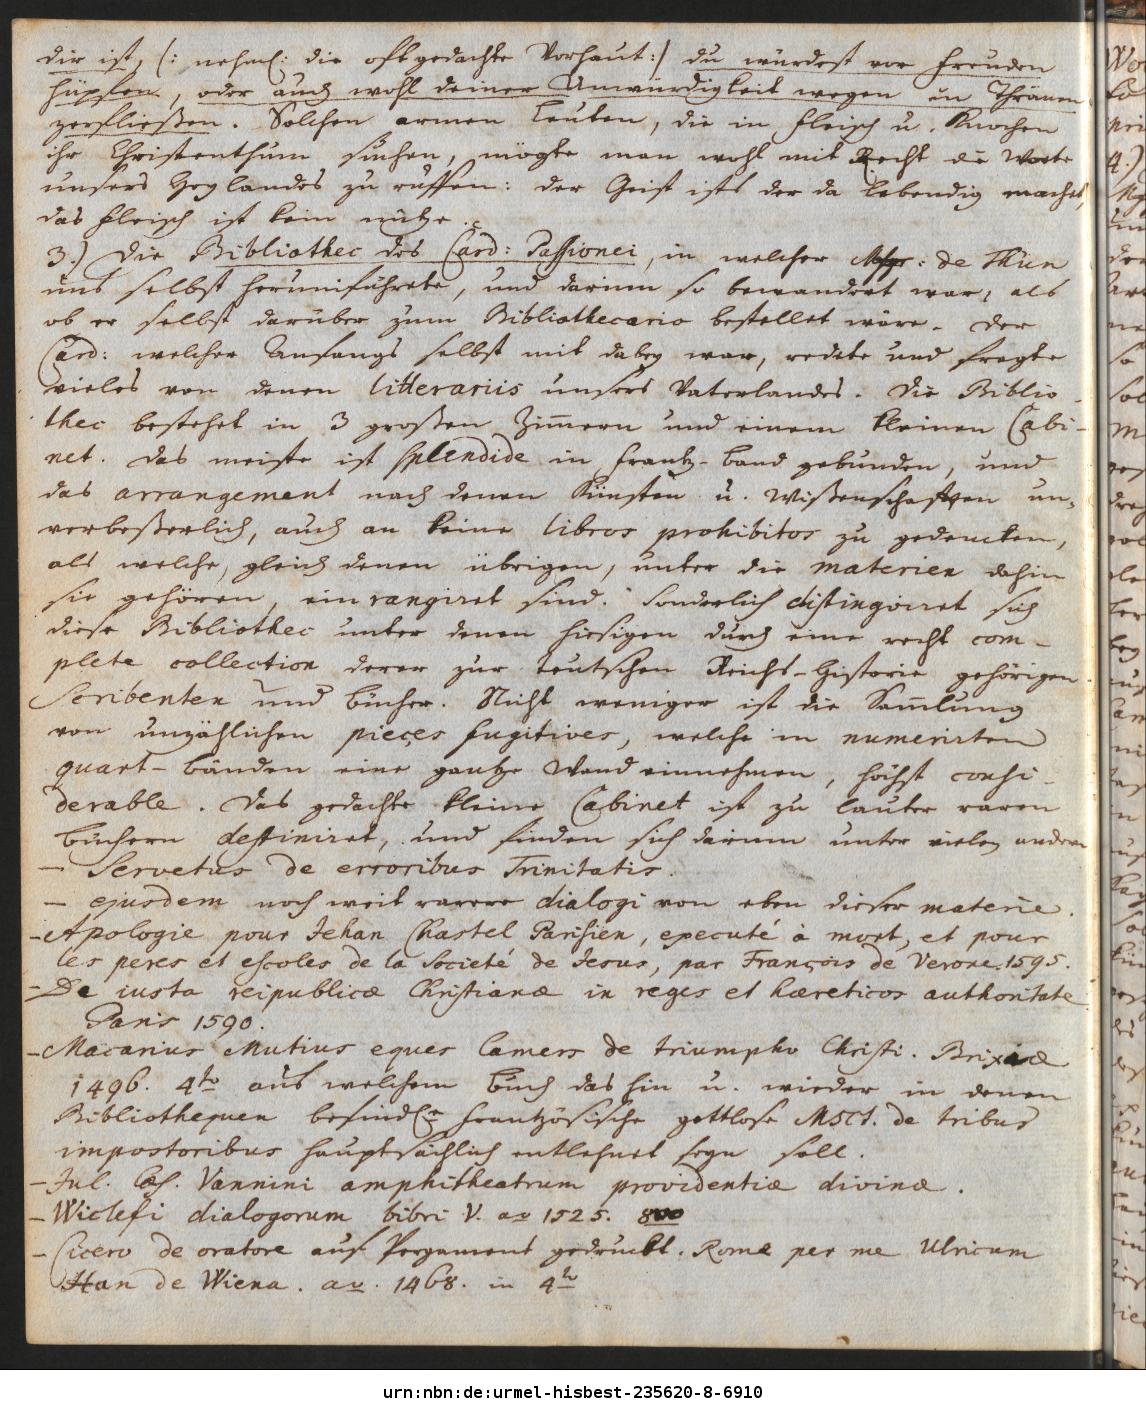 dir ist, (: nehml: die oft gedachte Vorhaut :) du würdest vor Freuden
hüpfen, oder auch wohl deiner Unwürdigkeit wegen in Thränen
zerfließen. Solchen armen Leuten, die in Fleisch u. Knochen
ihr Christenthum suchen, mögte man wohl mit Recht die Worte
unsers Heylandes zu ruffen: der Geist ists der da lebendig machet,
das Fleisch ist kein nütze.
3.) Die Bibliothec des Card: Passionei, in welcher Msgr: de Thün
uns selbst herumführete, und darinn so bewandert war, als
ob er selbst darüber zum Bibliothecario bestellet wäre. Der
Card: welcher Anfangs selbst mit dabey war, redete und fragte
vieles von denen litterariis unsers Vaterlandes. Die Biblio-
thec bestehet in 3 großen Zim̅ern und einem kleinen Cabi-
net. Das meiste ist splendide in Frantz-band gebunden, und
das arrangement nach denen Künsten u. Wißenschafften un-
verbeßerlich, auch an keine libros prohibitos zu gedencken,
als welche, gleich denen übrigen, unter die materien dahin
sie gehören, ein rangiret sind. Sonderlich distingviret sich
diese Bibliothec unter denen hiesigen durch eine recht com-
plete collection derer zur teutschen Reichs-Historie gehörigen
Scribenten und Bücher. Nicht weniger ist die Sam̅lung
von unzählichen pieçes fugitives, welche in numerirten
quart-bänden eine gantze Wand einnehmen, höchst consi-
derable. Das gedachte kleine Cabinet ist zu lauter raren
Büchern destiniret, und finden sich darinn unter vielen andern
– Servetus de erroribus Trinitatis.
– ejusdem noch weit rarere dialogi von eben dieser materie.
– Apologie pour Jehan Chastel Parisien, executé à mort, et pour
les peres et escoles de la Societé de Jesus, par François de Verone. 1595.
– De iusta reipublicæ Christianæ in reges et hæreticos authoritate
Paris 1590.
– Macarius Mutius eques Camers de triumpho Christi. Brixiæ
1496. 4to aus welchem Buch das hin u. wieder in denen
Bibliothequen befindl. frantzösische gottlose MSct. de tribus
impostoribus hauptsächlich entlehnet seyn soll.
– Jul. Cæs. Vannini amphitheatrum providentiæ divinæ.
– Wiclefi dialogorum libri V. ao 1525. 8vo
– Cicero de oratore auf Pergament gedruckt. Romæ per me Ulricum
Han de Wiena. ao. 1468. in 4to
urn:nbn:de:urmel-hisbest-235620-8-6910